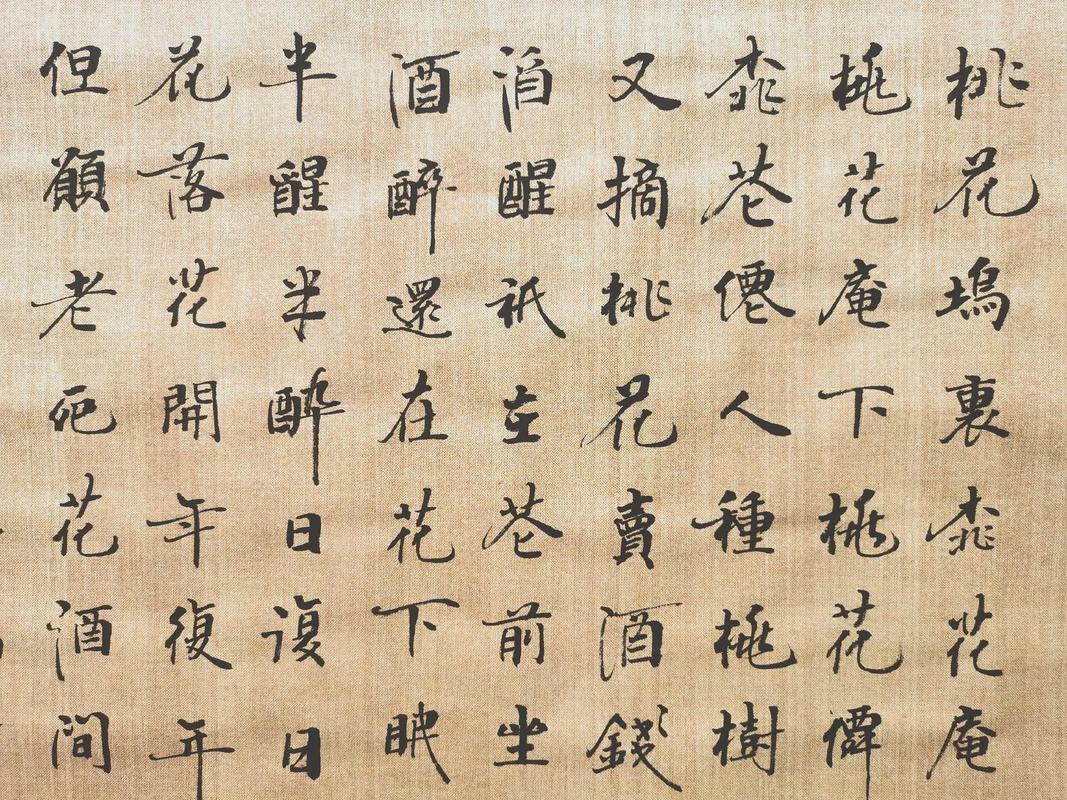 桃花塢裏桃花庵
桃花庵下桃花僊
桃花僊人種桃樹
又摘桃花賣酒錢
酒醒祇在花前坐
酒醉還在花下眠
半醒半醉日復日
花落花開年復年
但願老死花酒間